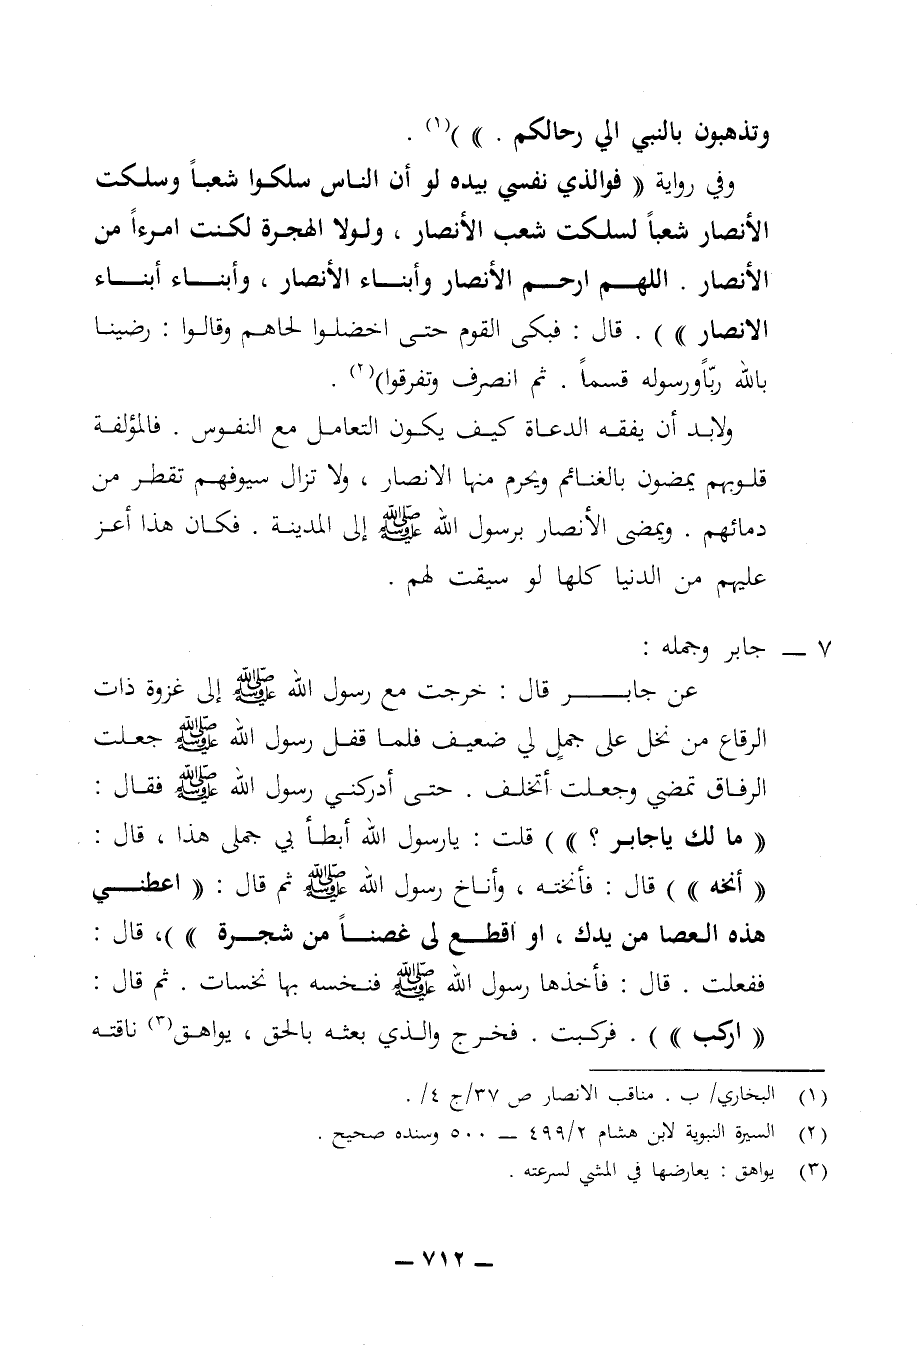 وتذهبون بالنبي الي رحالكم . » )(١) .
وفي رواية « فوالذي نفسي بيده لو أن الناس سلكوا شعباً وسلكت
الأنصار شعباً لسلكت شعب الأنصار ، ولولا الهجرة لكنت امرءاً من
الأنصار . اللهم ارحم الأنصار وأبناء الأنصار ، وأبناء أبناء
الانصار » ) . قال : فبكى القوم حتى اخضلوا لحاهم وقالوا : رضينا
بالله ربّاً ورسوله قسماً . ثم انصرف وتفرقوا)(٢) .
ولابد أن يفقه الدعاة كيف يكون التعامل مع النفوس . فالمؤلفة
قلوبهم يمضون بالغنائم ويحرم منها الانصار ، ولا تزال سيوفهم تقطر من
دمائهم . ويمضي الأنصار برسول الله ﷺ إلى المدينة . فكان هذا أعز
عليهم من الدنيا كلها لو سيقت لهم .
٧ — جابر وجمله :
عن جابر قال : خرجت مع رسول الله ﷺ إلى غزوة ذات
الرقاع من نخل على جملٍ لي ضعيف فلما قفل رسول الله ﷺ جعلت
الرفاق تمضي وجعلت أتخلف . حتى أدركني رسول الله ﷺ فقال :
« ما لك ياجابر ؟ » ) قلت : يارسول الله أبطأ بي جملي هذا ، قال :
« أنخه » ) قال : فأنخته ، وأناخ رسول الله ﷺ ثم قال : « اعطني
هذه العصا من يدك ، او اقطع لي غصناً من شجرة » )، قال :
ففعلت . قال : فأخذها رسول الله ﷺ فنخسه بها نخسات . ثم قال :
« اركب » ) . فركبت . فخرج والذي بعثه بالحق ، يواهق(٣) ناقته
(١) البخاري/ ب . مناقب الانصار ص ٣٧/ج ٤/ .
(٢) السيرة النبوية لابن هشام ٤٩٩/٢ — ٥٠٠ وسنده صحيح .
(٣) يواهق : يعارضها في المشي لسرعته .
— ٧١٢ —